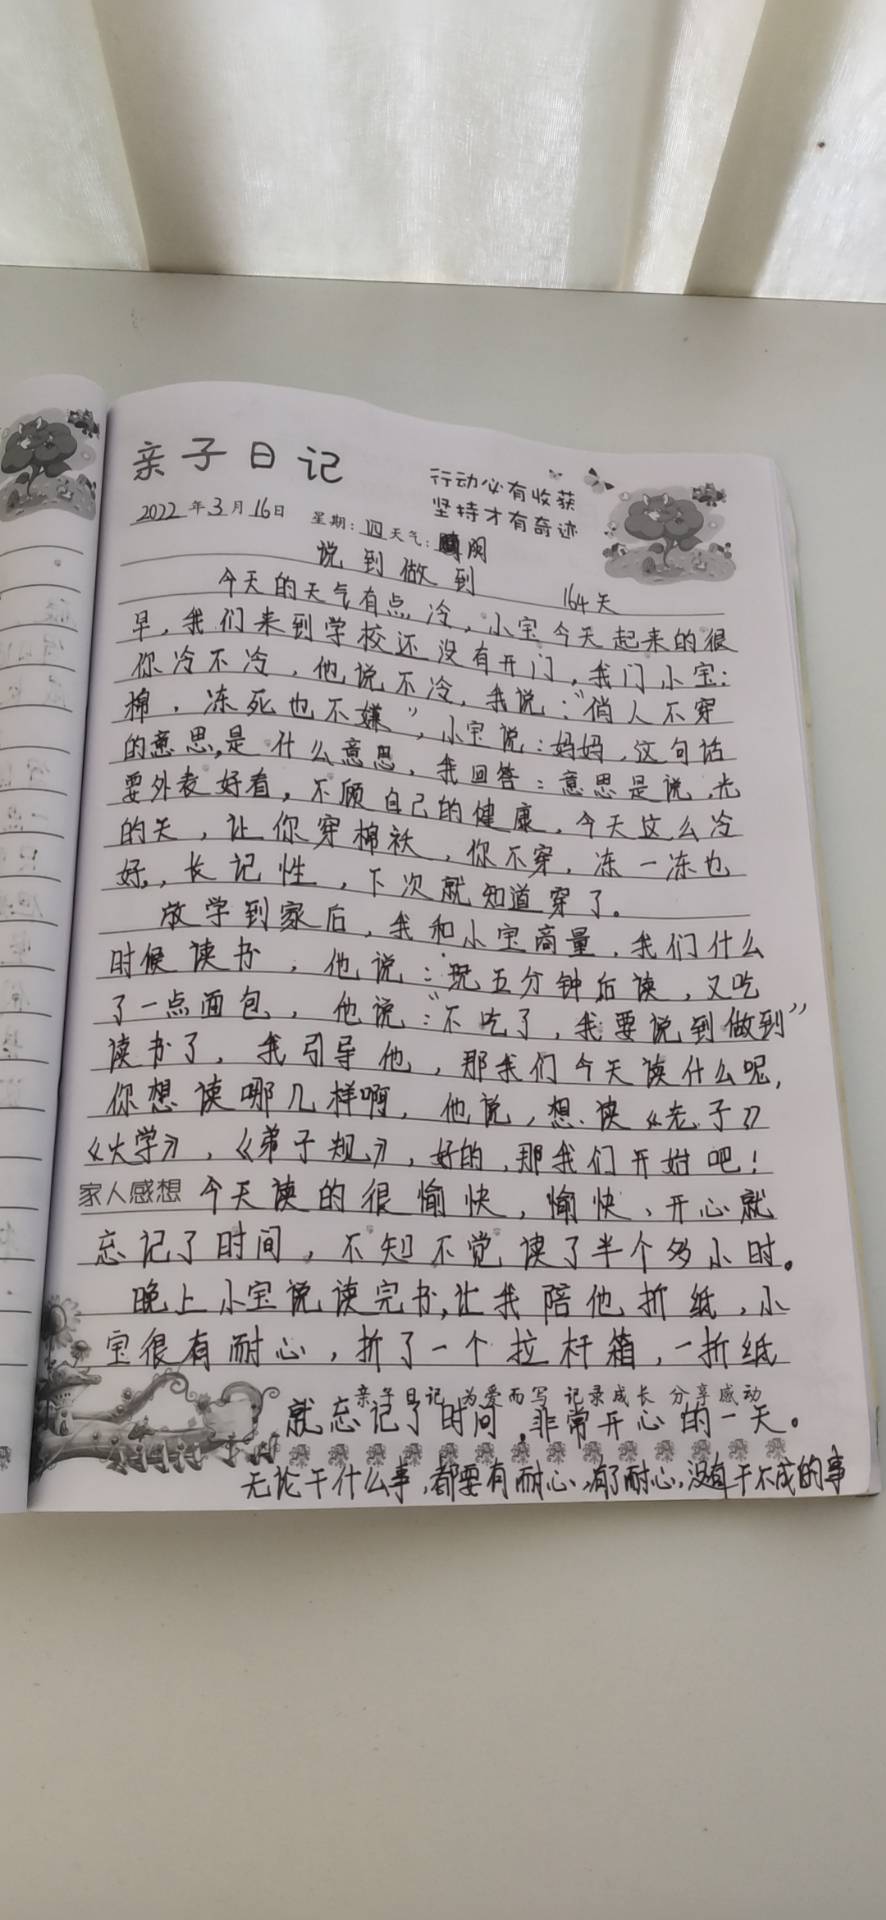 亲子日记
行动必有收获
坚持才有奇迹
2022年3月16日 星期:四 天气:阴
说到做到
164天
今天的天气有点冷,小宝今天起来的很
早,我们来到学校还没有开门,我门小宝:
你冷不冷,他说不冷,我说:“俏人不穿
棉,冻死也不嫌”,小宝说:妈妈,这句话
的意思,是什么意思,我回答:意思是说,光
要外表好看,不顾自己的健康,今天这么冷
的天,让你穿棉袄,你不穿,冻一冻也
好,长记性,下次就知道穿了。
放学到家后,我和小宝商量,我们什么
时候读书,他说:玩五分钟后读,又吃
了一点面包,他说:“不吃了,我要说到做到”
读书了,我引导他,那我们今天读什么呢,
你想读哪几样啊,他说,想读《老子》
《大学》,《弟子规》,好的,那我们开始吧!
家人感想 今天读的很愉快,愉快、开心就
忘记了时间,不知不觉读了半个多小时。
晚上小宝说读完书,让我陪他折纸,小
宝很有耐心,折了一个拉杆箱,一折纸
亲子日记 为爱而写 记录成长 分享感动
就忘记了时间,非常开心的一天。
无论干什么事,都要有耐心,有了耐心,没有干不成的事